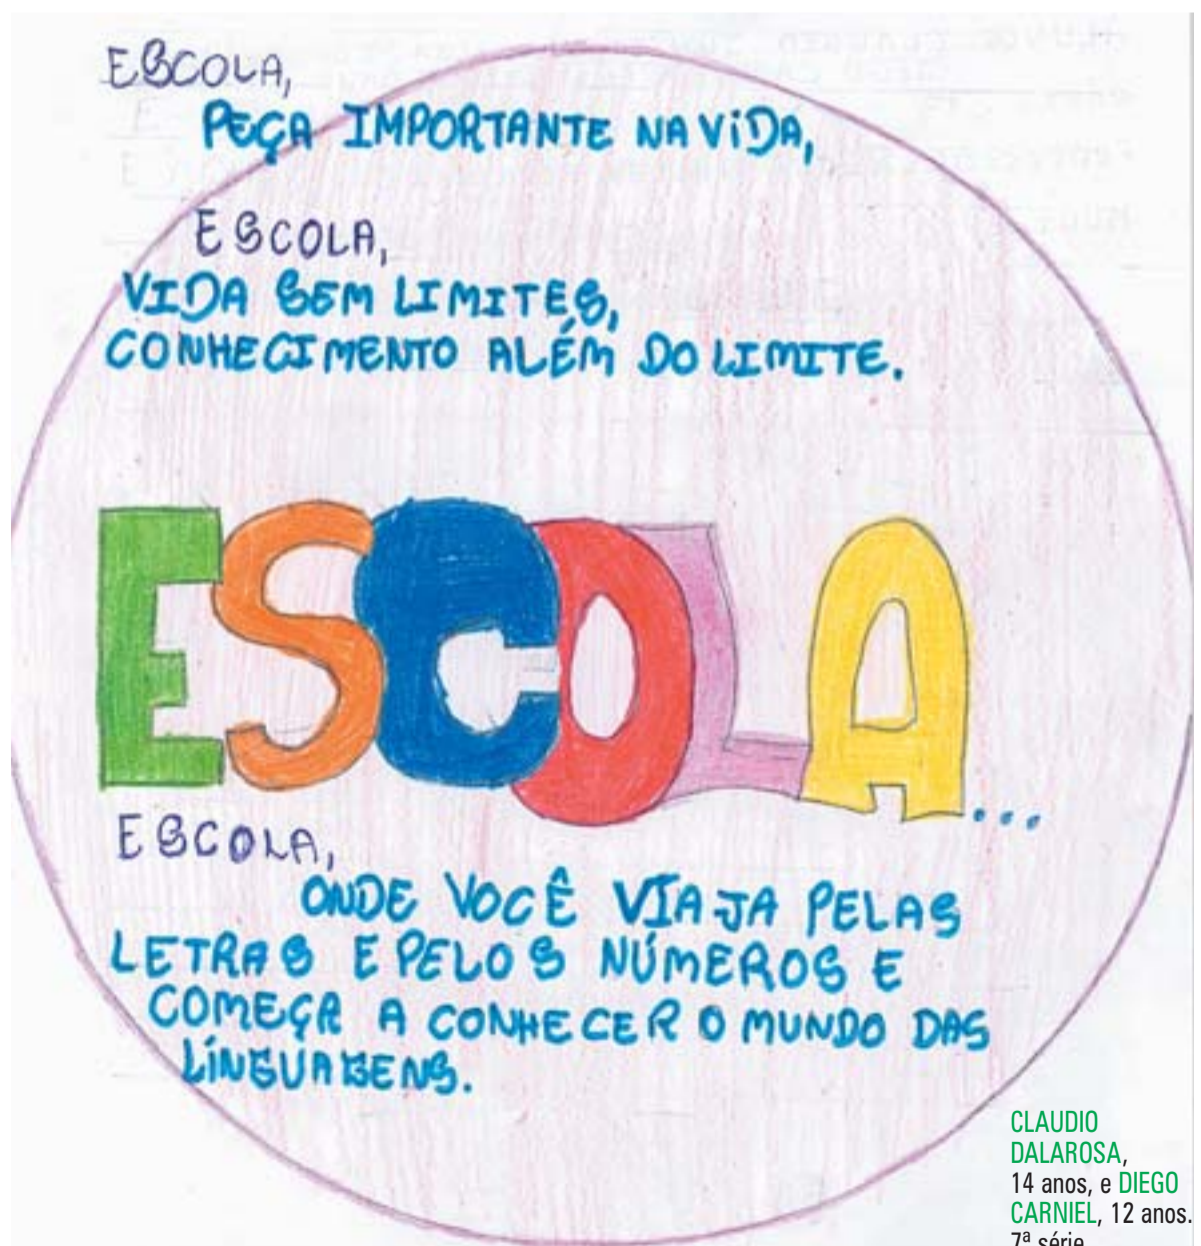 ESCOLA,
PEÇA IMPORTANTE NA VIDA,
ESCOLA,
VIDA SEM LIMITES,
CONHECIMENTO ALÉM DO LIMITE.
ESCOLA...
ESCOLA,
ONDE VOCÊ VIAJA PELAS
LETRAS E PELOS NÚMEROS E
COMEÇA A CONHECER O MUNDO DAS
LÍNGUAGENS.
CLAUDIO
DALAROSA,
14 anos, e DIEGO
CARNIEL, 12 anos.
7ª série